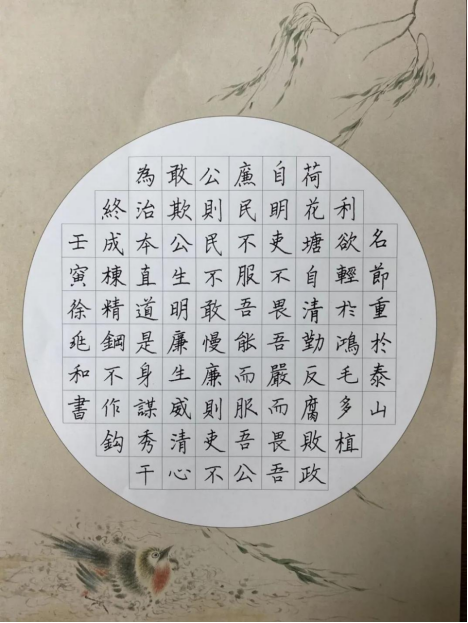 名節重於泰山
利欲輕於鴻毛多植
荷花塘自清勤反腐敗政
自明吏不畏吾嚴而畏吾
廉民不服吾能而服吾公
公則民不敢慢廉則吏不
敢欺公生明廉生威清心
為治本直道是身謀秀干
終成棟精鋼不作鈎
壬寅徐兆和書